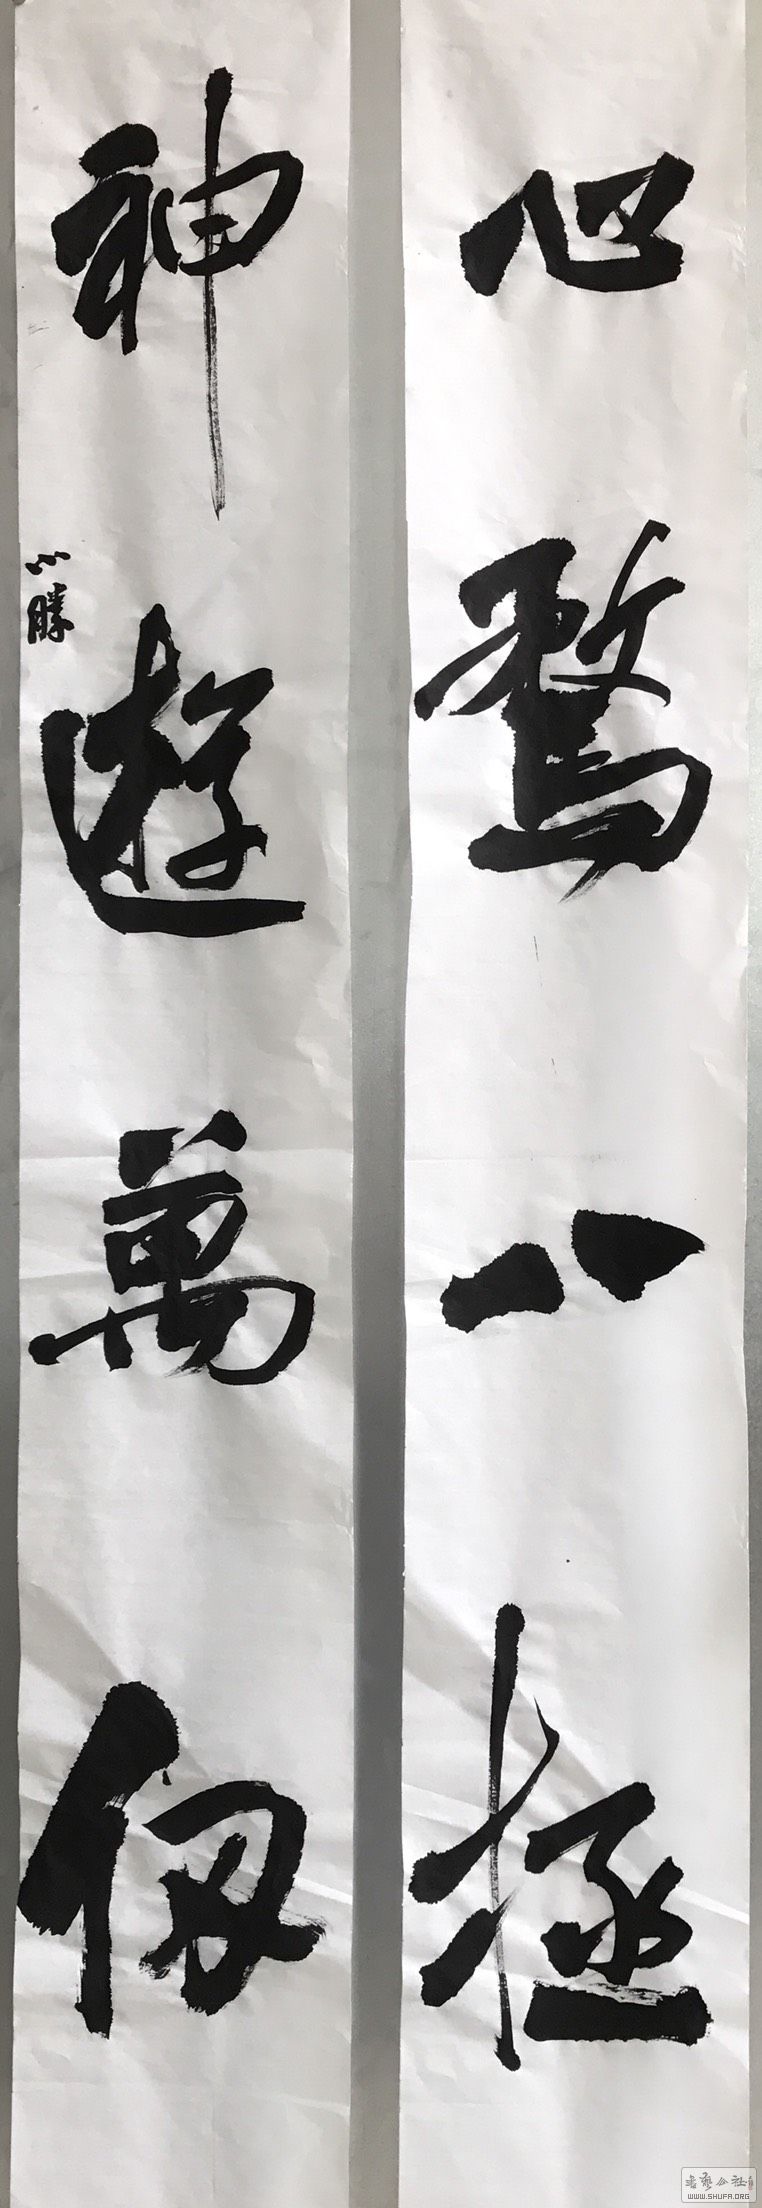 心騖八極
神遊萬仞
心勝
書藝公社
WWW.SHUFA.ORG